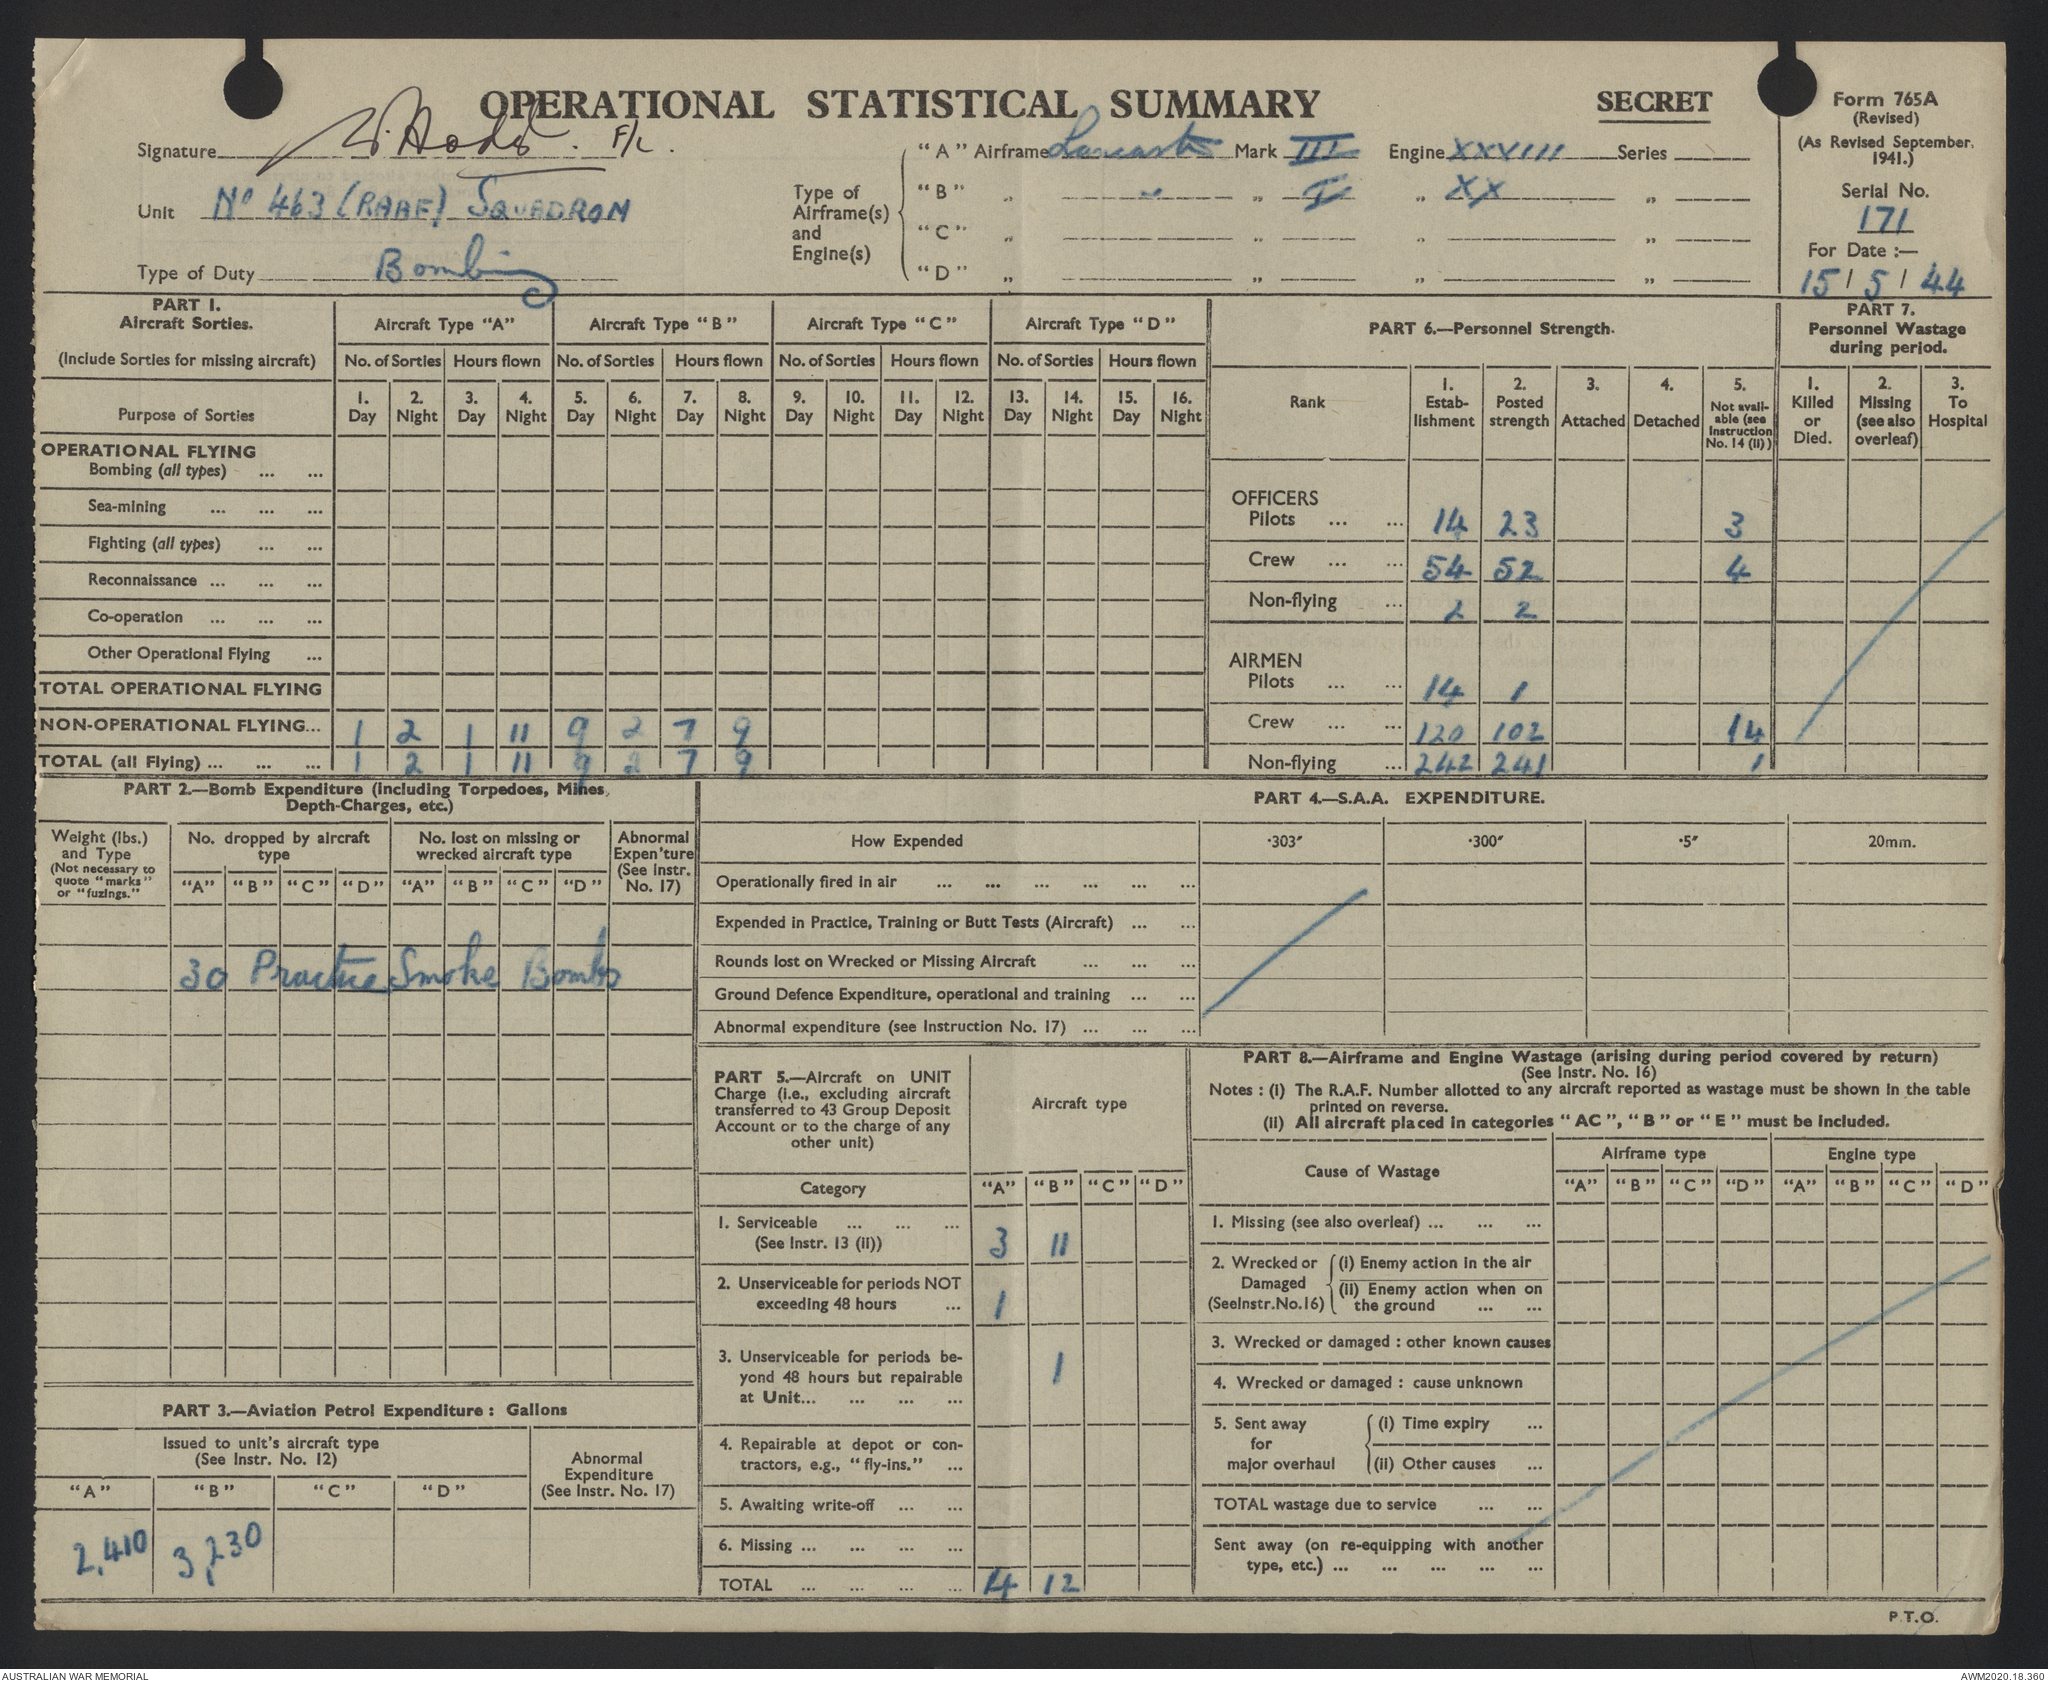 OPERATIONAL STATISTICAL SUMMARY
SECRET
Form 765A
(Revised)
(As Revised September, 1941.)
Serial No.
171
For Date :—
15 / 5 / 44
Signature F/L.
Unit No 463 (RAAF) SQUADRON
Type of Duty Bombing
Type of Airframe(s) and Engine(s)
"A" Airframe Lancaster Mark III Engine XXVIII Series
"B" „ „ „ I „ XX „
"C" „ „ „ „
"D" „ „ „ „
PART 1.
Aircraft Sorties.
(Include Sorties for missing aircraft)
Aircraft Type "A" Aircraft Type "B" Aircraft Type "C" Aircraft Type "D"
No. of Sorties Hours flown No. of Sorties Hours flown No. of Sorties Hours flown No. of Sorties Hours flown
Purpose of Sorties
1. Day 2. Night 3. Day 4. Night 5. Day 6. Night 7. Day 8. Night 9. Day 10. Night 11. Day 12. Night 13. Day 14. Night 15. Day 16. Night
OPERATIONAL FLYING
Bombing (all types) ... ...
Sea-mining ... ... ...
Fighting (all types) ... ...
Reconnaissance ... ... ...
Co-operation ... ... ...
Other Operational Flying ...
TOTAL OPERATIONAL FLYING
NON-OPERATIONAL FLYING... 1 2 1 11 9 2 7 9
TOTAL (all Flying) ... ... ... 1 2 1 11 9 2 7 9
PART 6.—Personnel Strength.
Rank
1. Estab-lishment
2. Posted strength
3. Attached
4. Detached
5. Not avail-able (see Instruction No. 14 (ii))
OFFICERS
Pilots ... ... 14 23 3
Crew ... ... 54 52 4
Non-flying ... 2 2
AIRMEN
Pilots ... ... 14 1
Crew ... ... 120 102 14
Non-flying ... 242 241 1
PART 7.
Personnel Wastage during period.
1. Killed or Died.
2. Missing (see also overleaf)
3. To Hospital
PART 2.—Bomb Expenditure (including Torpedoes, Mines, Depth-Charges, etc.)
Weight (lbs.) and Type
(Not necessary to quote "marks" or "fuzings."
No. dropped by aircraft type
No. lost on missing or wrecked aircraft type
Abnormal Expen'ture (See Instr. No. 17)
"A" "B" "C" "D" "A" "B" "C" "D"
30 Practice Smoke Bombs
PART 3.—Aviation Petrol Expenditure : Gallons
Issued to unit's aircraft type
(See Instr. No. 12)
Abnormal Expenditure
(See Instr. No. 17)
"A" "B" "C" "D"
2,410 3,230
PART 4.—S.A.A. EXPENDITURE.
How Expended ·303" ·300" ·5" 20mm.
Operationally fired in air ... ... ... ... ... ...
Expended in Practice, Training or Butt Tests (Aircraft) ... ...
Rounds lost on Wrecked or Missing Aircraft ... ... ...
Ground Defence Expenditure, operational and training ... ...
Abnormal expenditure (see Instruction No. 17) ... ... ...
PART 5.—Aircraft on UNIT
Charge (i.e., excluding aircraft
transferred to 43 Group Deposit
Account or to the charge of any
other unit)
Aircraft type
Category "A" "B" "C" "D"
1. Serviceable ... ... ...
(See Instr. 13 (ii)) 3 11
2. Unserviceable for periods NOT
exceeding 48 hours ... 1
3. Unserviceable for periods be-
yond 48 hours but repairable 1
at Unit... ... ... ...
4. Repairable at depot or con-
tractors, e.g., "fly-ins." ...
5. Awaiting write-off ... ...
6. Missing ... ... ... ...
TOTAL ... ... ... ... 4 12
PART 8.—Airframe and Engine Wastage (arising during period covered by return)
(See Instr. No. 16)
Notes : (i) The R.A.F. Number allotted to any aircraft reported as wastage must be shown in the table
printed on reverse.
(ii) All aircraft placed in categories "AC", "B" or "E" must be included.
Cause of Wastage
Airframe type Engine type
"A" "B" "C" "D" "A" "B" "C" "D"
1. Missing (see also overleaf) ... ... ...
2. Wrecked or Damaged (See Instr. No. 16)
(i) Enemy action in the air
(ii) Enemy action when on
the ground ... ...
3. Wrecked or damaged : other known causes
4. Wrecked or damaged : cause unknown
5. Sent away for major overhaul
(i) Time expiry ...
(ii) Other causes ...
TOTAL wastage due to service ... ...
Sent away (on re-equipping with another
type, etc.) ... ... ... ... ...
P.T.O.
AUSTRALIAN WAR MEMORIAL
AWM2020.18.360